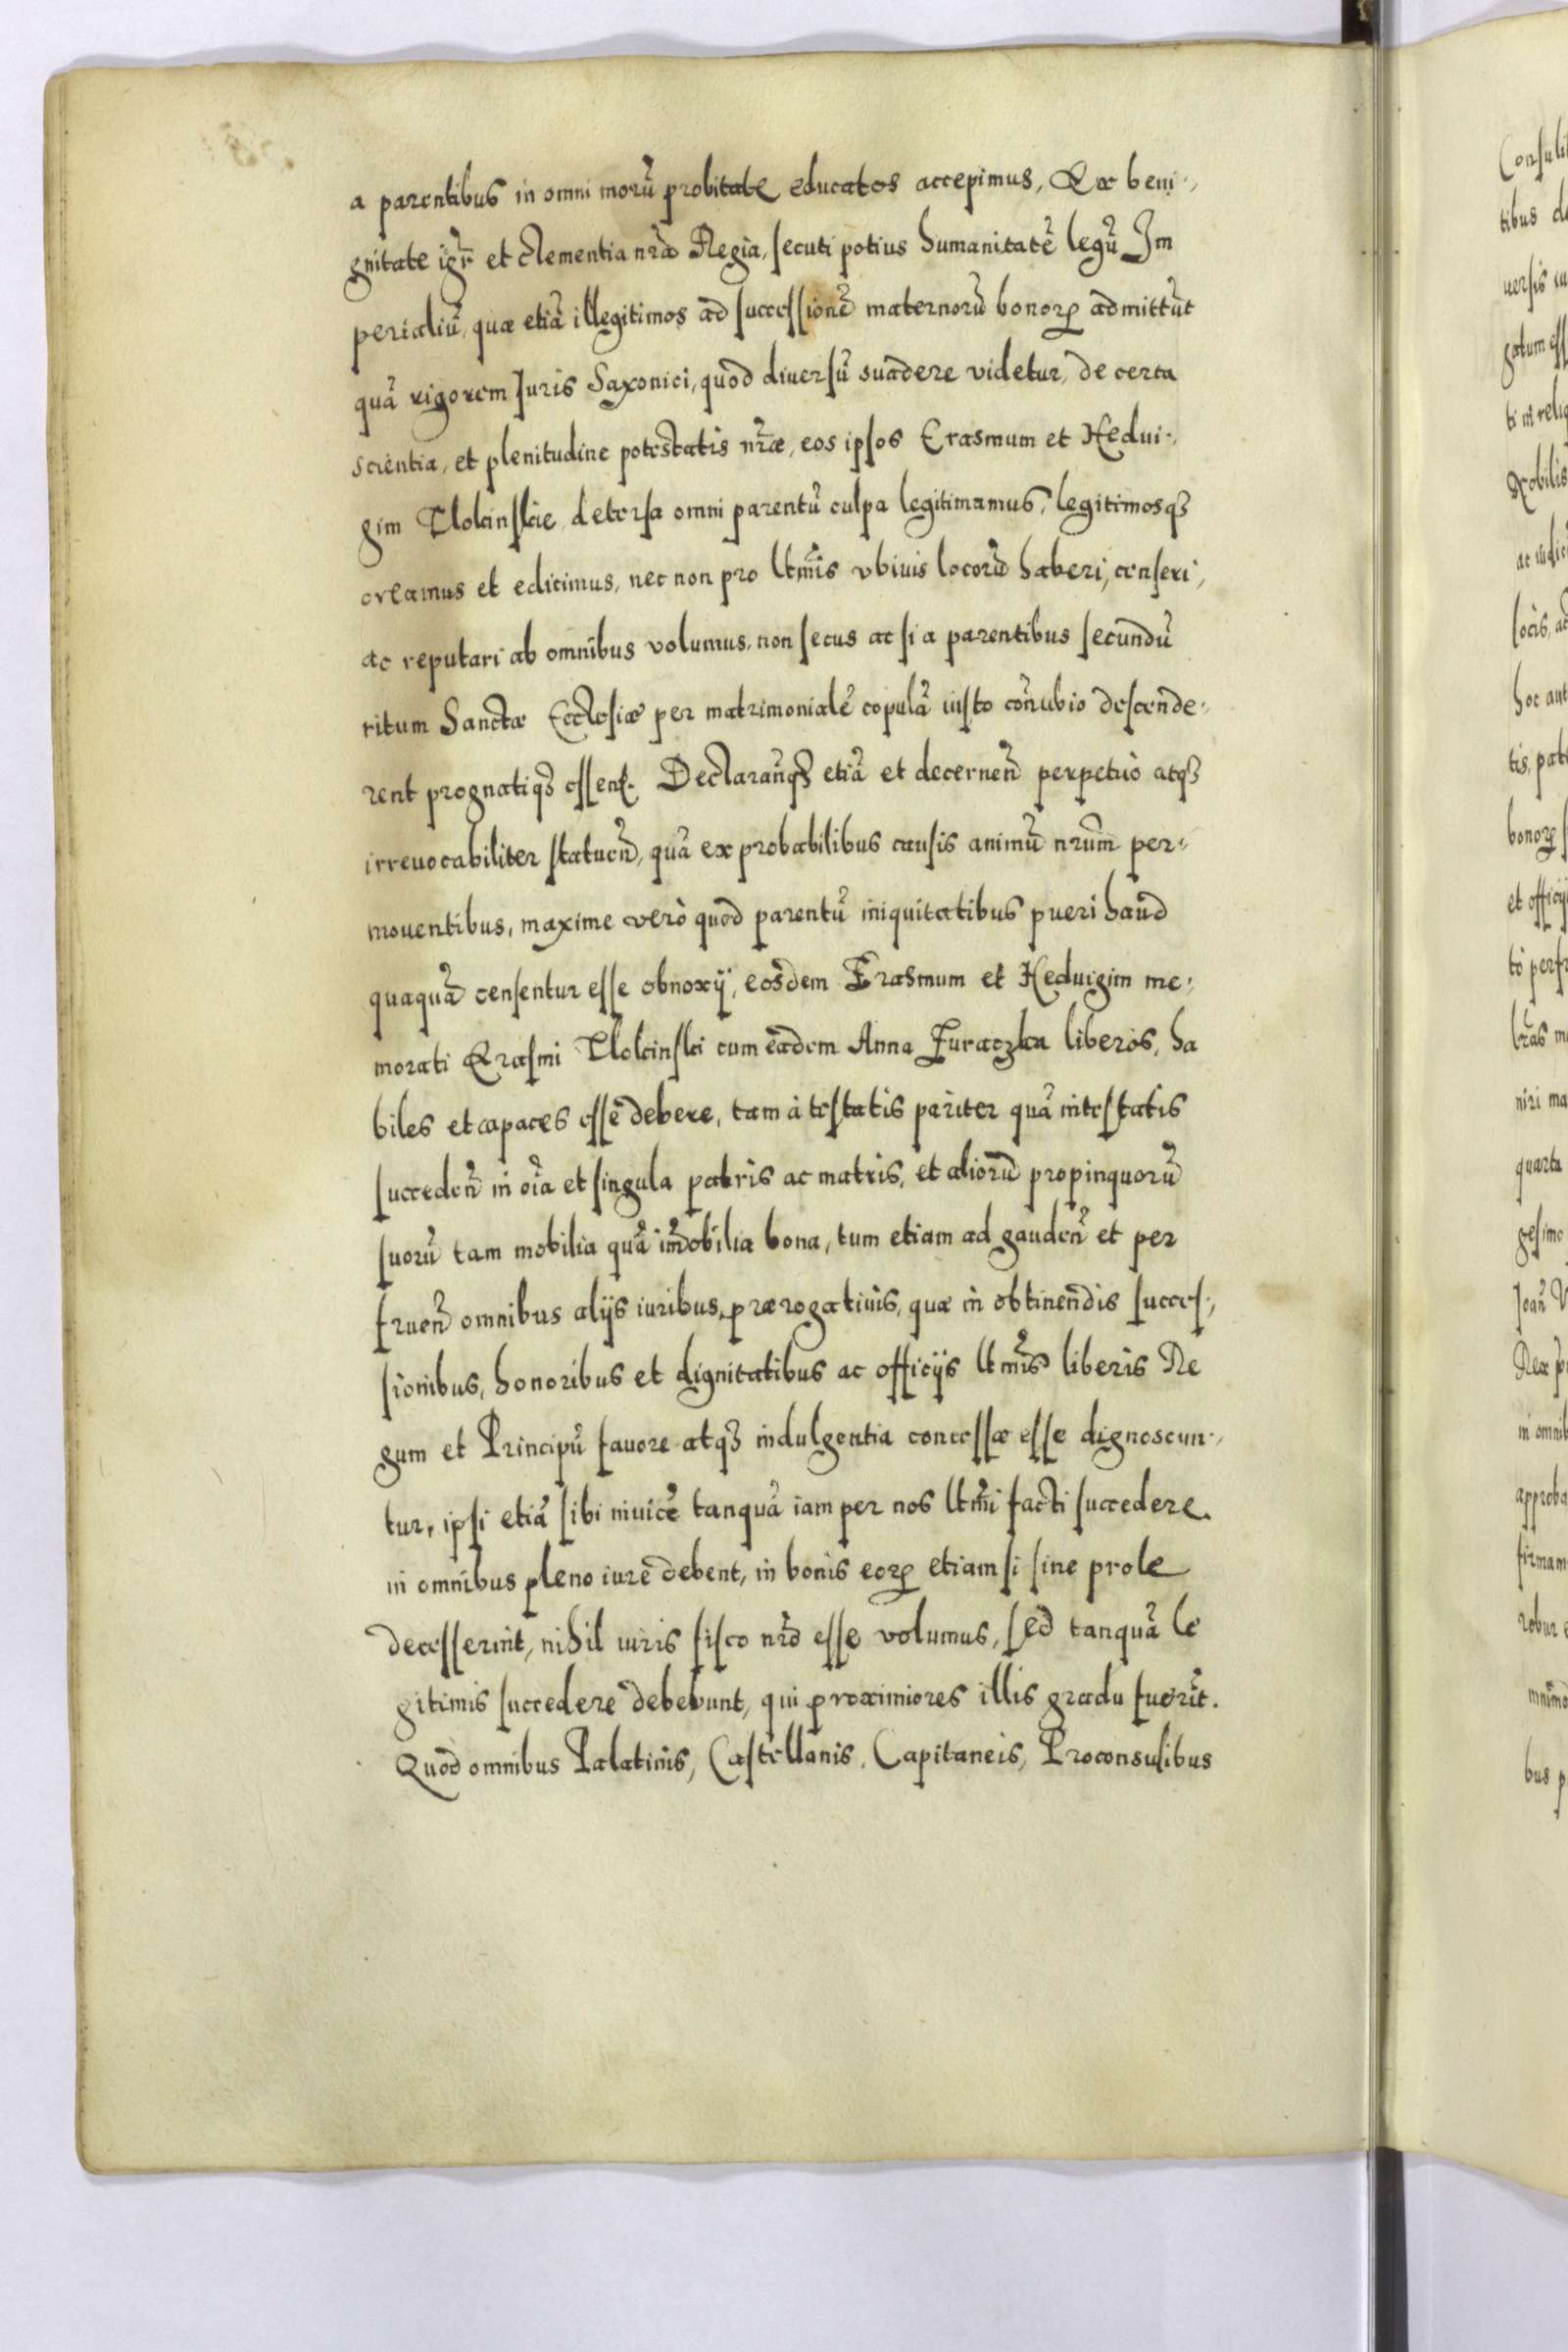 a parentibus in omni morũ probitate educatos accepimus, Ex beni-,
gnitate igr̃ et clementia nrã Regia, secuti potius humanitatẽ legũ Im
perialiũ, quæ etiã illegitimos ad successionẽ maternorũ bonorꝝ admittũt
quã rigorem Iuris Saxonici, quod diuersũ suadere videtur, de certa
scientia, et plenitudine potestatis nrãe, eos ipsos Erasmum et Hedui-,
gim Tlokinskie, detersa omni parentũ culpa legitimamus, legitimosqꝫ
creamus et edicimus, nec non pro ltm̃is vbiuis locorũ haberi, censeri,
ac reputari ab omnibus volumus, non secus ac si a parentibus secundũ
ritum Sanctæ Ecclesiæ per matrimonialẽ copulã iusto cõnubio descende-
rent prognatiqꝫ essent. Declarañqꝫ etiã et decerneñ perpetuò atqꝫ
irreuocabiliter statueñ, quã ex probabilibus causis animũ nrũm per-
mouentibus, maxime verò quod parentũ iniquitatibus pueri haud
quaquã censentur esse obnoxij, eosdem Erasmum et Heduigim me-
morati Erasmi Tlokinski cum eadem Anna Furaczka liberos, ha
biles et capaces esse debere, tam à testatis pariter quã intestatis
succedeñ in oĩa et singula patris ac matris, et aliorũ propinquorũ
suorũ tam mobilia quã im̃obilia bona, tum etiam ad gaudeñ et per
frueñ omnibus alijs iuribus, prærogatiuis, quæ in obtinendis succes-,
sionibus, honoribus et dignitatibus ac officijs ltm̃is liberis Re
gum et Principũ fauore atqꝫ indulgentia concessæ esse dignoscun-,
tur, ipsi etiã sibi inuicẽ tanquã iam per nos ltm̃i facti succedere
in omnibus pleno iure debent, in bonis eorꝝ etiam si sine prole
decesserint, nihil iuris fisco nrõ esse volumus, sed tanquã le
gitimis succedere debebunt, qui proximiores illis gradu fuerĩt.
Quod omnibus Palatinis, Castellanis, Capitaneis, Proconsulibus